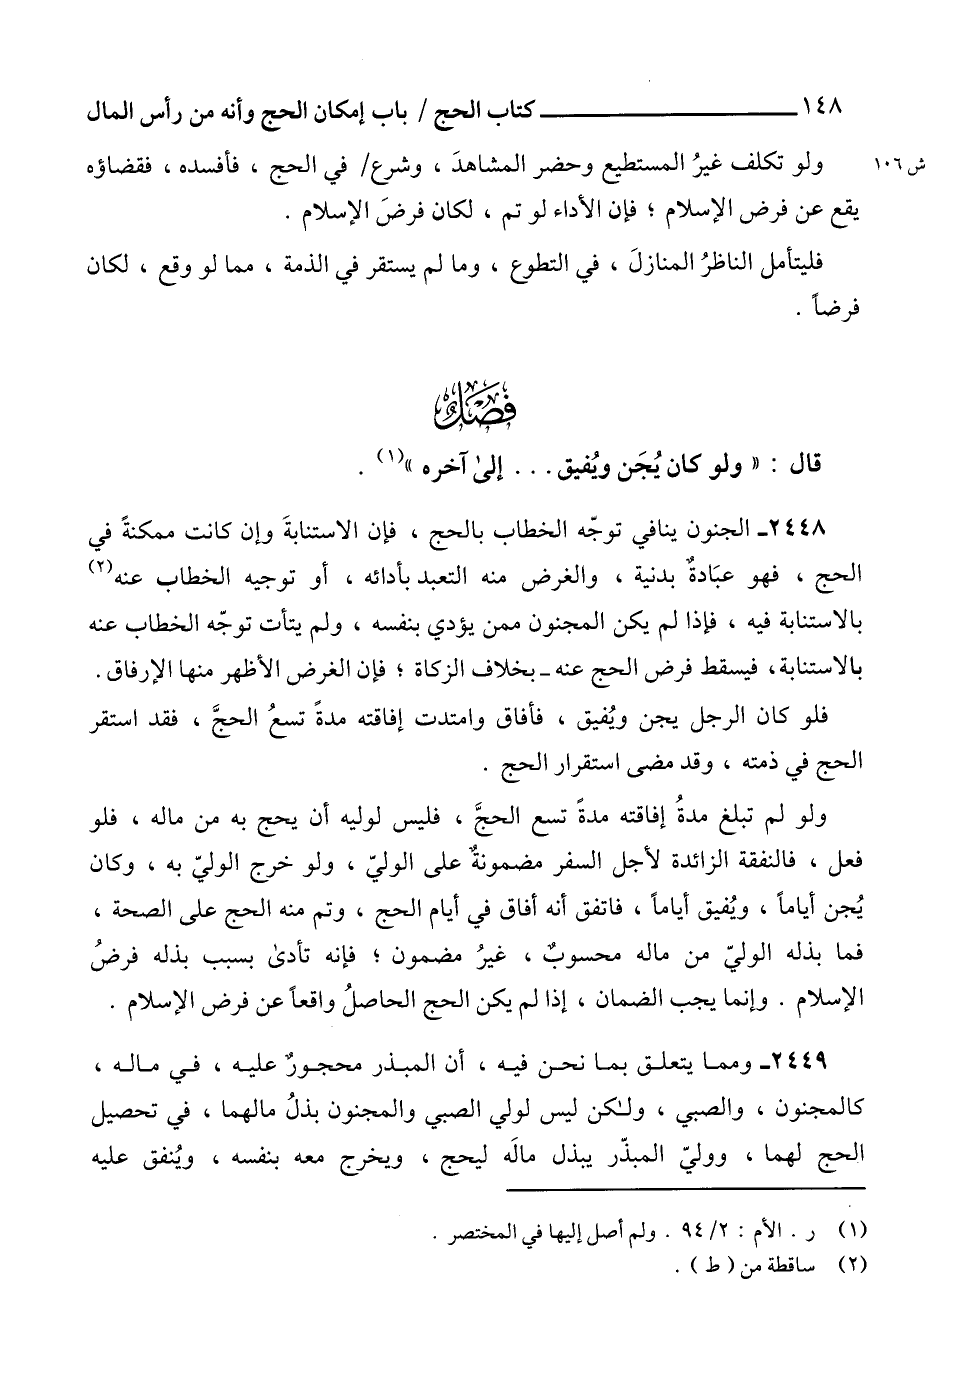 ١٤٨ ــــــــــــ كتاب الحج / باب إمكان الحج وأنه من رأس المال
ش ١٠٦ ولو تكلف غيرُ المستطيع وحضر المشاهدَ ، وشرع/ في الحج ، فأفسده ، فقضاؤه
يقع عن فرض الإسلام ؛ فإن الأداء لو تم ، لكان فرضَ الإسلام .
فليتأمل الناظرُ المنازلَ ، في التطوع ، وما لم يستقر في الذمة ، مما لو وقع ، لكان
فرضاً .
فصل
قال : « ولو كان يُجَن ويُفيق . . . إلىٰ آخره »(١) .
٢٤٤٨ـ الجنون ينافي توجّه الخطاب بالحج ، فإن الاستنابةَ وإن كانت ممكنةً في
الحج ، فهو عبَادةٌ بدنية ، والغرض منه التعبد بأدائه ، أو توجيه الخطاب عنه(٢)
بالاستنابة فيه ، فإذا لم يكن المجنون ممن يؤدي بنفسه ، ولم يتأت توجّه الخطاب عنه
بالاستنابة، فيسقط فرض الحج عنه ـ بخلاف الزكاة ؛ فإن الغرض الأظهر منها الإرفاق .
فلو كان الرجل يجن ويُفيق ، فأفاق وامتدت إفاقته مدةً تسعُ الحجَّ ، فقد استقر
الحج في ذمته ، وقد مضى استقرار الحج .
ولو لم تبلغ مدةُ إفاقته مدةً تسع الحجَّ ، فليس لوليه أن يحج به من ماله ، فلو
فعل ، فالنفقة الزائدة لأجل السفر مضمونةٌ على الوليّ ، ولو خرج الوليّ به ، وكان
يُجن أياماً ، ويُفيق أياماً ، فاتفق أنه أفاق في أيام الحج ، وتم منه الحج على الصحة ،
فما بذله الوليّ من ماله محسوبٌ ، غيرُ مضمون ؛ فإنه تأدىٰ بسبب بذله فرضُ
الإسلام . وإنما يجب الضمان ، إذا لم يكن الحج الحاصلُ واقعاً عن فرض الإسلام .
٢٤٤٩ـ ومما يتعلق بما نحن فيه ، أن المبذر محجورٌ عليه ، في ماله ،
كالمجنون ، والصبي ، ولٰكن ليس لولي الصبي والمجنون بذلُ مالهما ، في تحصيل
الحج لهما ، ووليّ المبذّر يبذل مالَه ليحج ، ويخرج معه بنفسه ، ويُنفق عليه
(١) ر . الأم : ٢/ ٩٤ . ولم أصل إليها في المختصر .
(٢) ساقطة من ( ط ) .